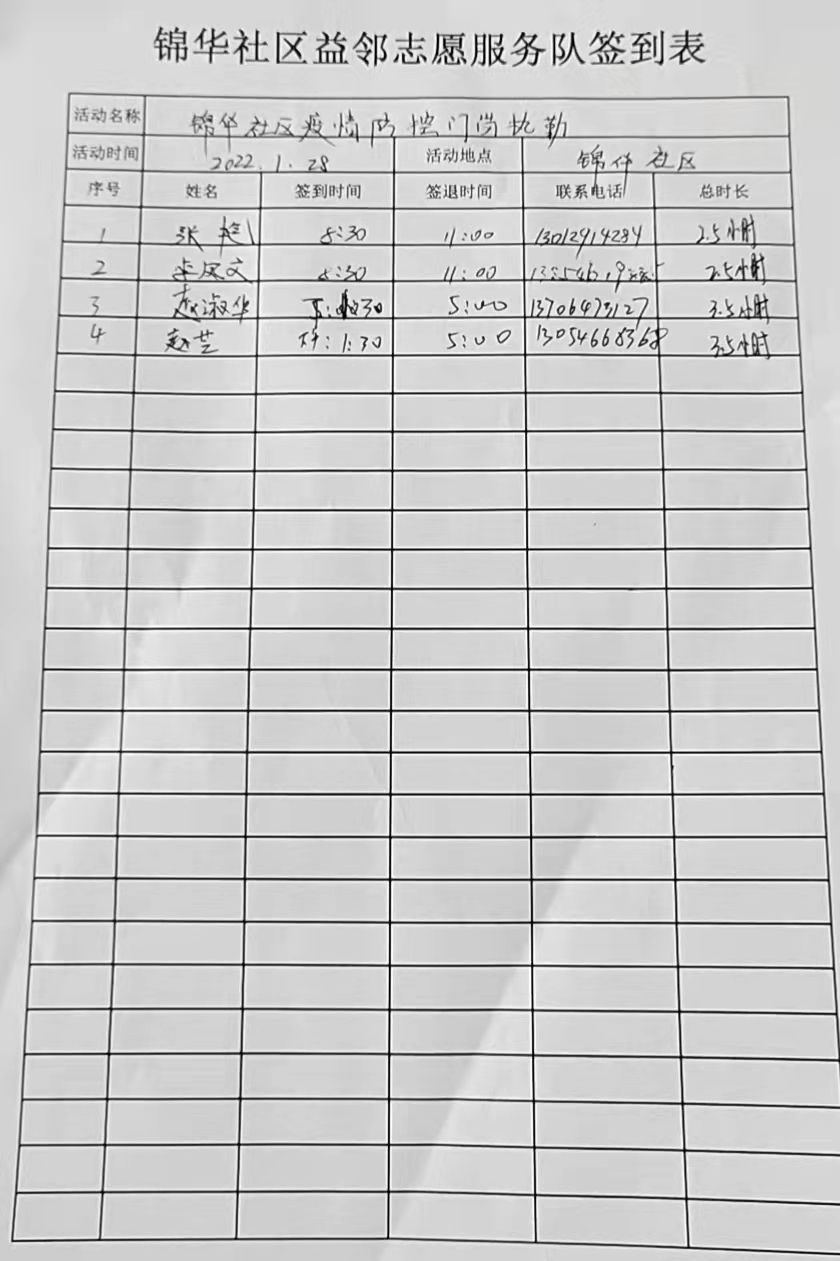 锦华社区益邻志愿服务队签到表
活动名称 锦华社区疫情防控门岗执勤
活动时间 2022.1.28 活动地点 锦华社区
序号 姓名 签到时间 签退时间 联系电话 总时长
1 张艳 8:30 11:00 13012914284 2.5小时
2 李凤文 8:30 11:00 2.5小时
3 赵淑华 5:00 13706473127 3.5小时
4 赵芸 1:30 5:00 13054668368 3.5小时